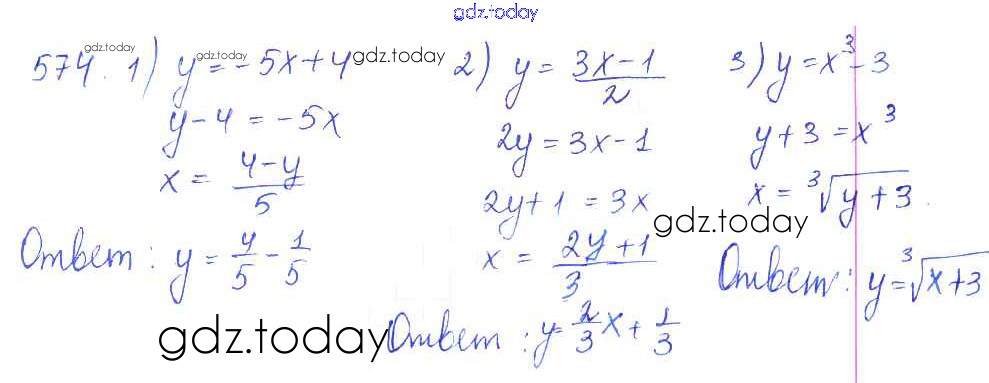 gdz.today
574. 1) y = -5x + 4
y - 4 = -5x
x = (4-y)/5
Ответ: y = 4/5 - 1/5
2) y = (3x-1)/2
2y = 3x - 1
2y + 1 = 3x
x = (2y+1)/3
Ответ: y = 2/3 x + 1/3
3) y = x³ - 3
y + 3 = x³
x = ³√(y+3).
Ответ: y = ³√(x+3)
gdz.today
gdz.today
gdz.today
gdz.today
gdz.today